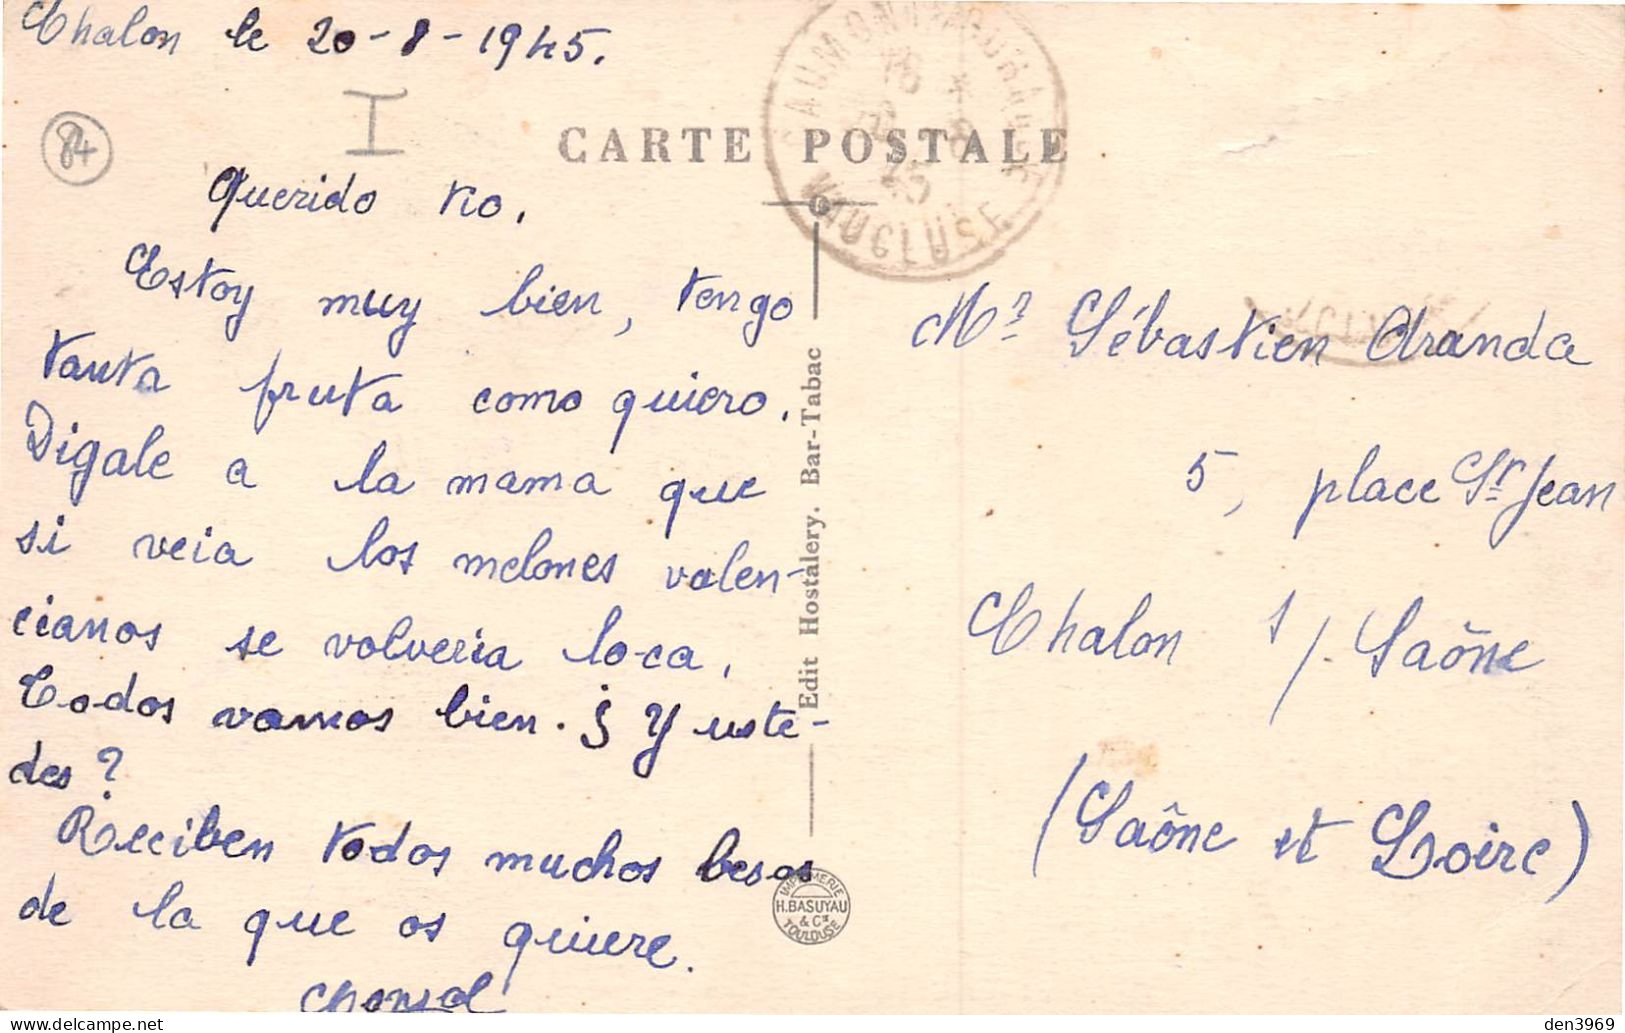 Chalon le 20-8-1945.
I
84
CARTE POSTALE
Querido tio.
Estoy muy bien, tengo
tanta fruta como quiero.
Digale a la mama que
si veia los melones valen-
cianos se volveria loca.
Todos vamos bien. ¿ Y uste-
des?
Reciben todos muchos besos
de la que os quiere.
VAUCLUSE
Edit Hostalery. Bar-Tabac
IMPRIMERIE
H. BASUYAU
& Cie
TOULOUSE
Mr Sébastien Aranda
5, place St Jean
Chalon s/ Saône
(Saône et Loire)
den3969